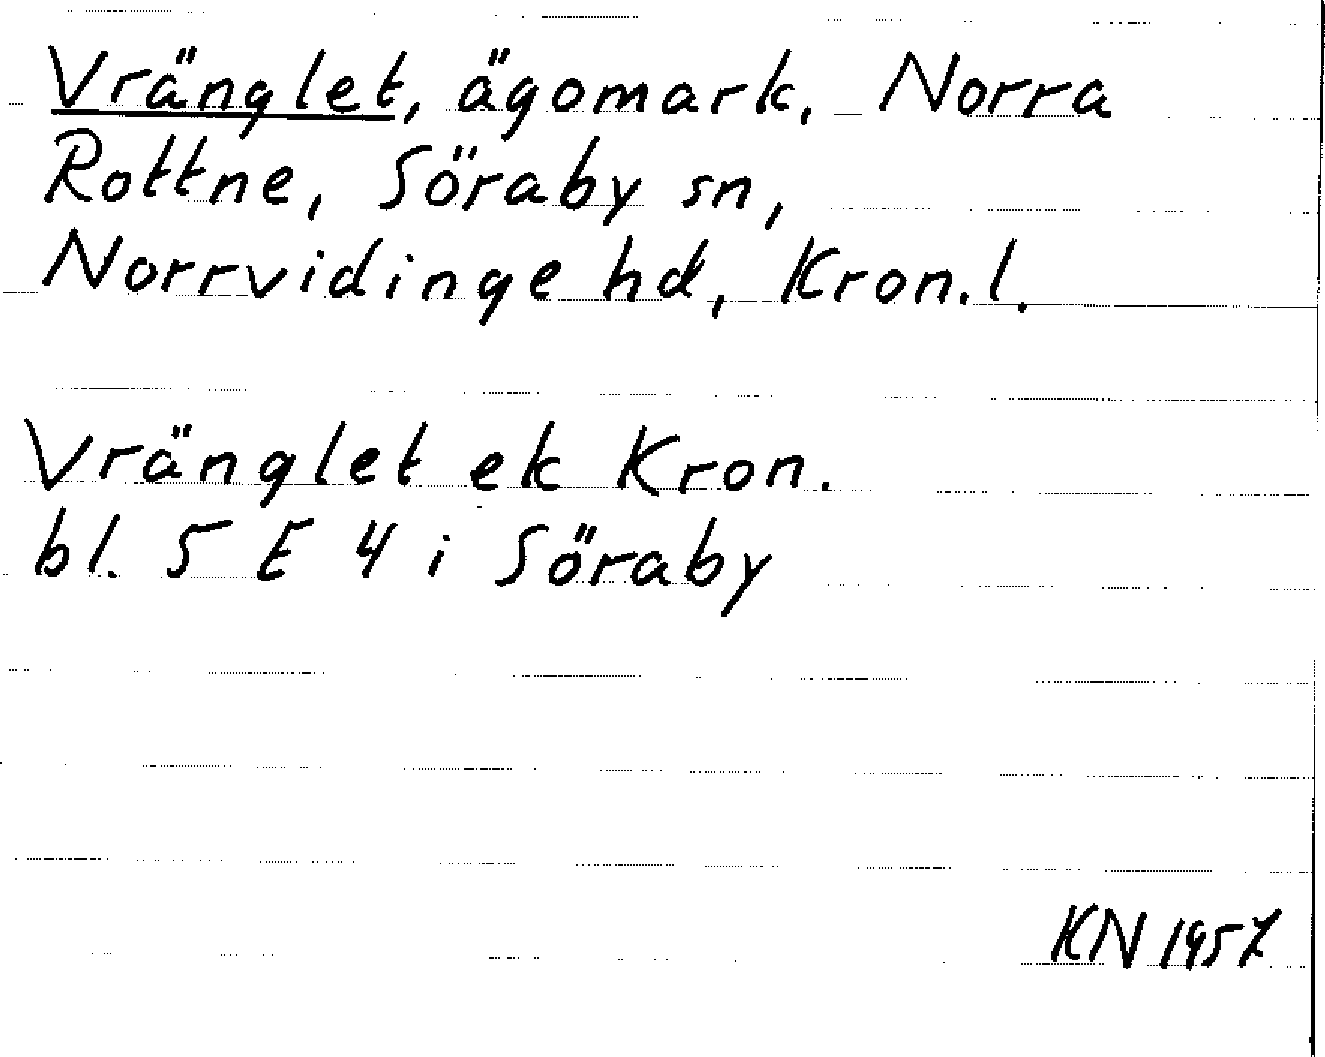 Vränglet, ägomark, Norra
Rottne, Söraby sn,
Norrvidinge hd, Kron.l.
Vränglet ek Kron.
bl. 5 E 4 i Söraby
KN 1957